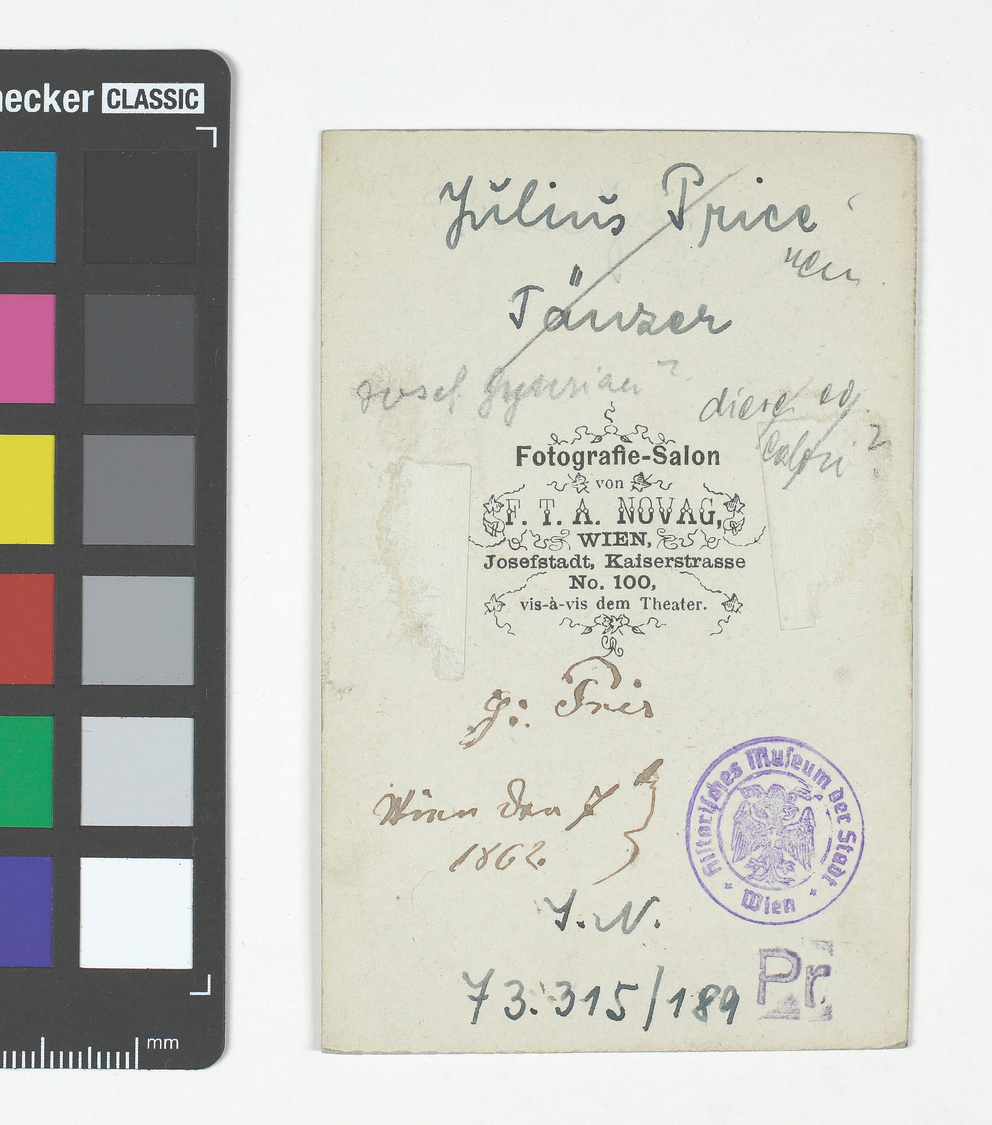 ecker CLASSIC
Julius Price
Tänzer
Josef
Fotografie-Salon
von
F. T. A. NOVAG,
WIEN,
Josefstadt, Kaiserstrasse
No. 100,
vis-à-vis dem Theater.
Wien den 7
1862
Historisches Museum der Stadt Wien
I. N.
73.315/189
Pr.
mm